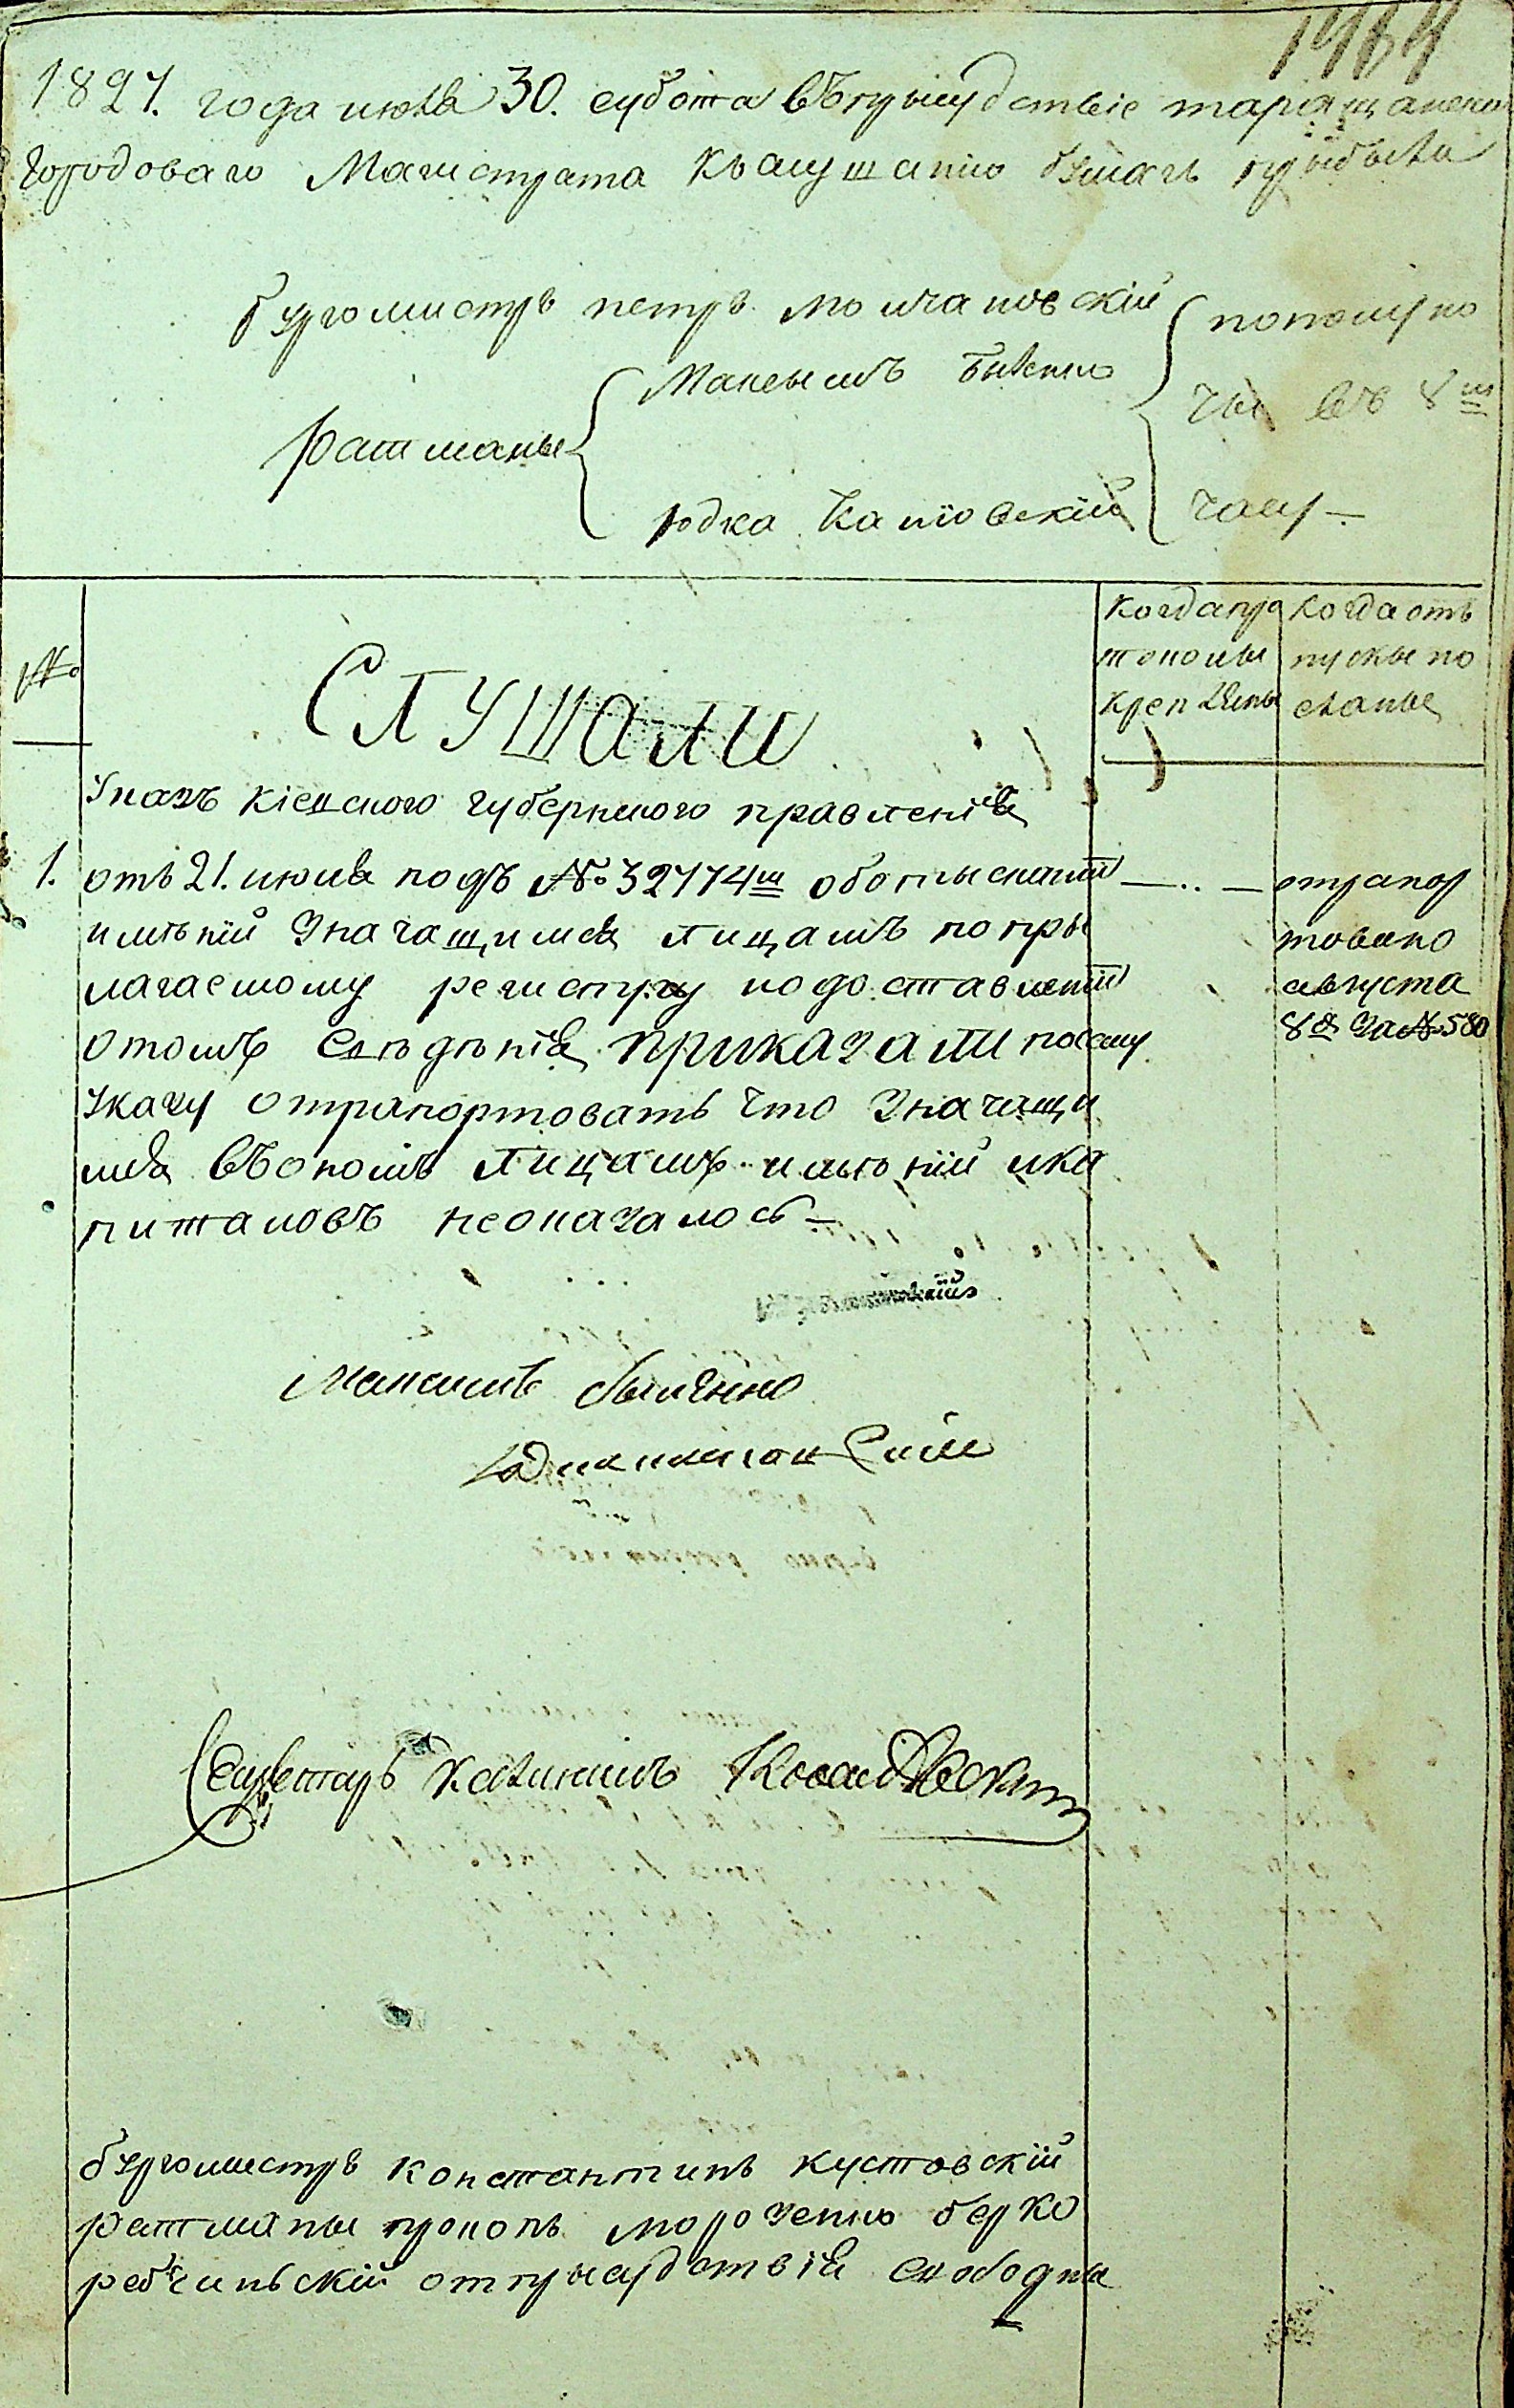 1464
1827. года июля 30. субота въ прысудствіе таращанско
городоваго Магистрата къ слушанію бумагъ прыбыли
бургомистръ петръ молчановскій
ратманы
Максымъ
юдка Каповскій
пополуно
чы въ 8м
часу —
№
СЛУШАЛИ
когда про
токолы
крепленны
когда отъ
пуски по
сланы
Указъ кіевского губернского правленія
1. отъ 21. июля подъ № 32774м оботысканіи
имѣній значащимся лицамъ по пры
лагаемому регистру и о доставленіи
отомъ сведѣнія приказали по сему
указу отрапортовать что значащи
мся въ ономъ лицамъ имѣній ика
питаловъ неоказалось —
отрапор
товано
августа
8го за № 580
Максимъ
Секретарь
бургомистръ константинъ кустовскій
ратманы прокопъ морозенко берко
ребчинскій отпрысудствія свободны